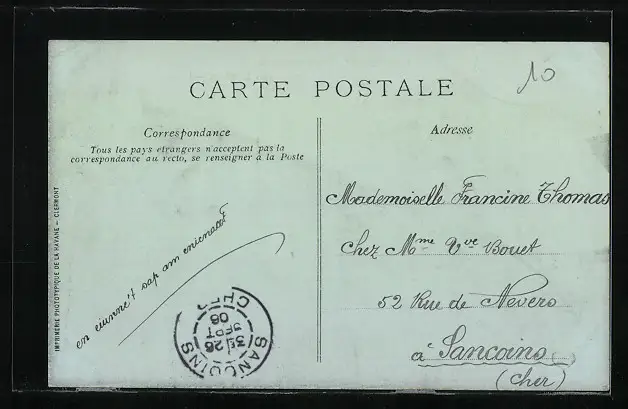 10
CARTE POSTALE
Correspondance
Tous les pays étrangers n'acceptent pas la
correspondance au recto, se renseigner à la Poste
en eiunne't sap am enicnarF
IMPRIMERIE PHOTOTYPIQUE DE LA HAVANE – CLERMONT
SANCOINS
CHER
26
SEPT
Adresse
Mademoiselle Francine Thomas
chez Mme Vve Bouet
52 Rue de Nevers
à Sancoins
(Cher)